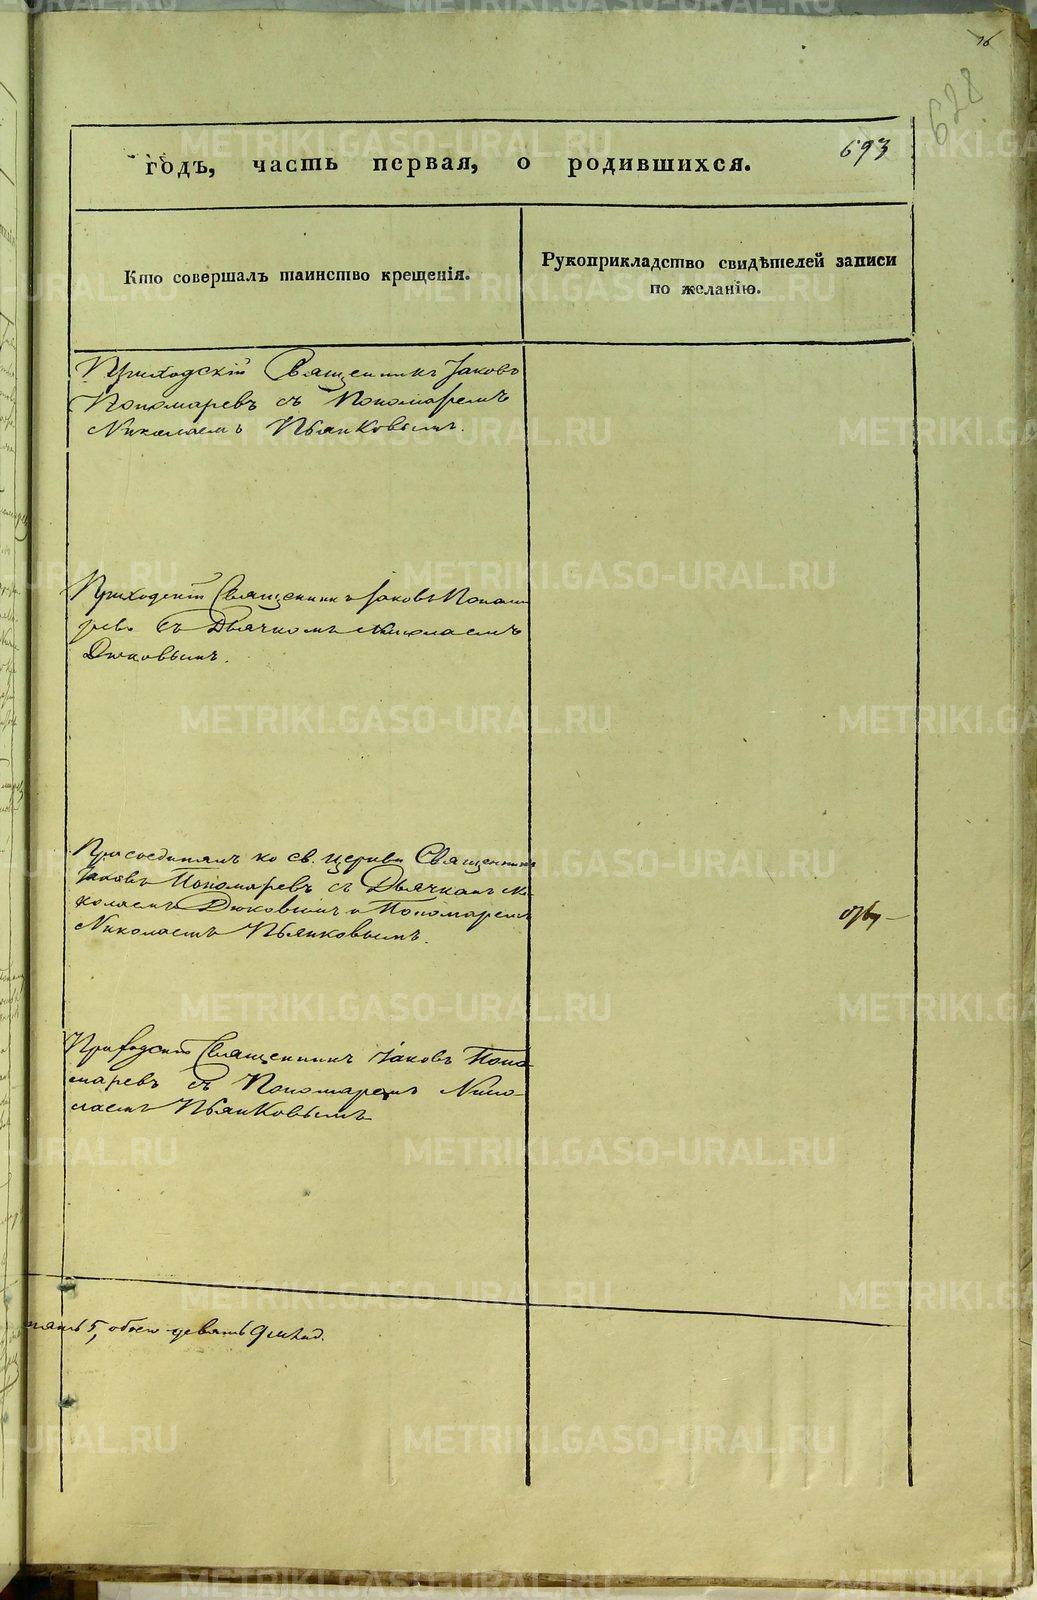 16
628
693
годъ, часть первая, о родившихся.
Кто совершалъ таинство крещенія.
Рукоприкладство свидѣтелей записи
по желанію.
Приходскій Священникъ Іаковъ
Пономаревъ съ Пономаремъ
Николаемъ Пьянковымъ.
Приходскій Священникъ Іаковъ Понома
ревъ съ Дьячкомъ Николаемъ
Дюковымъ.
Присоединялъ ко св. церкви Священникъ
Іаковъ Пономаревъ съ Дьячкомъ Ни
колаемъ Дюковымъ и Пономаремъ
Николаемъ Пьянковымъ.
Приходскій Священникъ Іаковъ Поно
маревъ съ Пономаремъ Нико
лаемъ Пьянковымъ
пять 5, обоего девять 9
METRIKI.GASO-URAL.RU